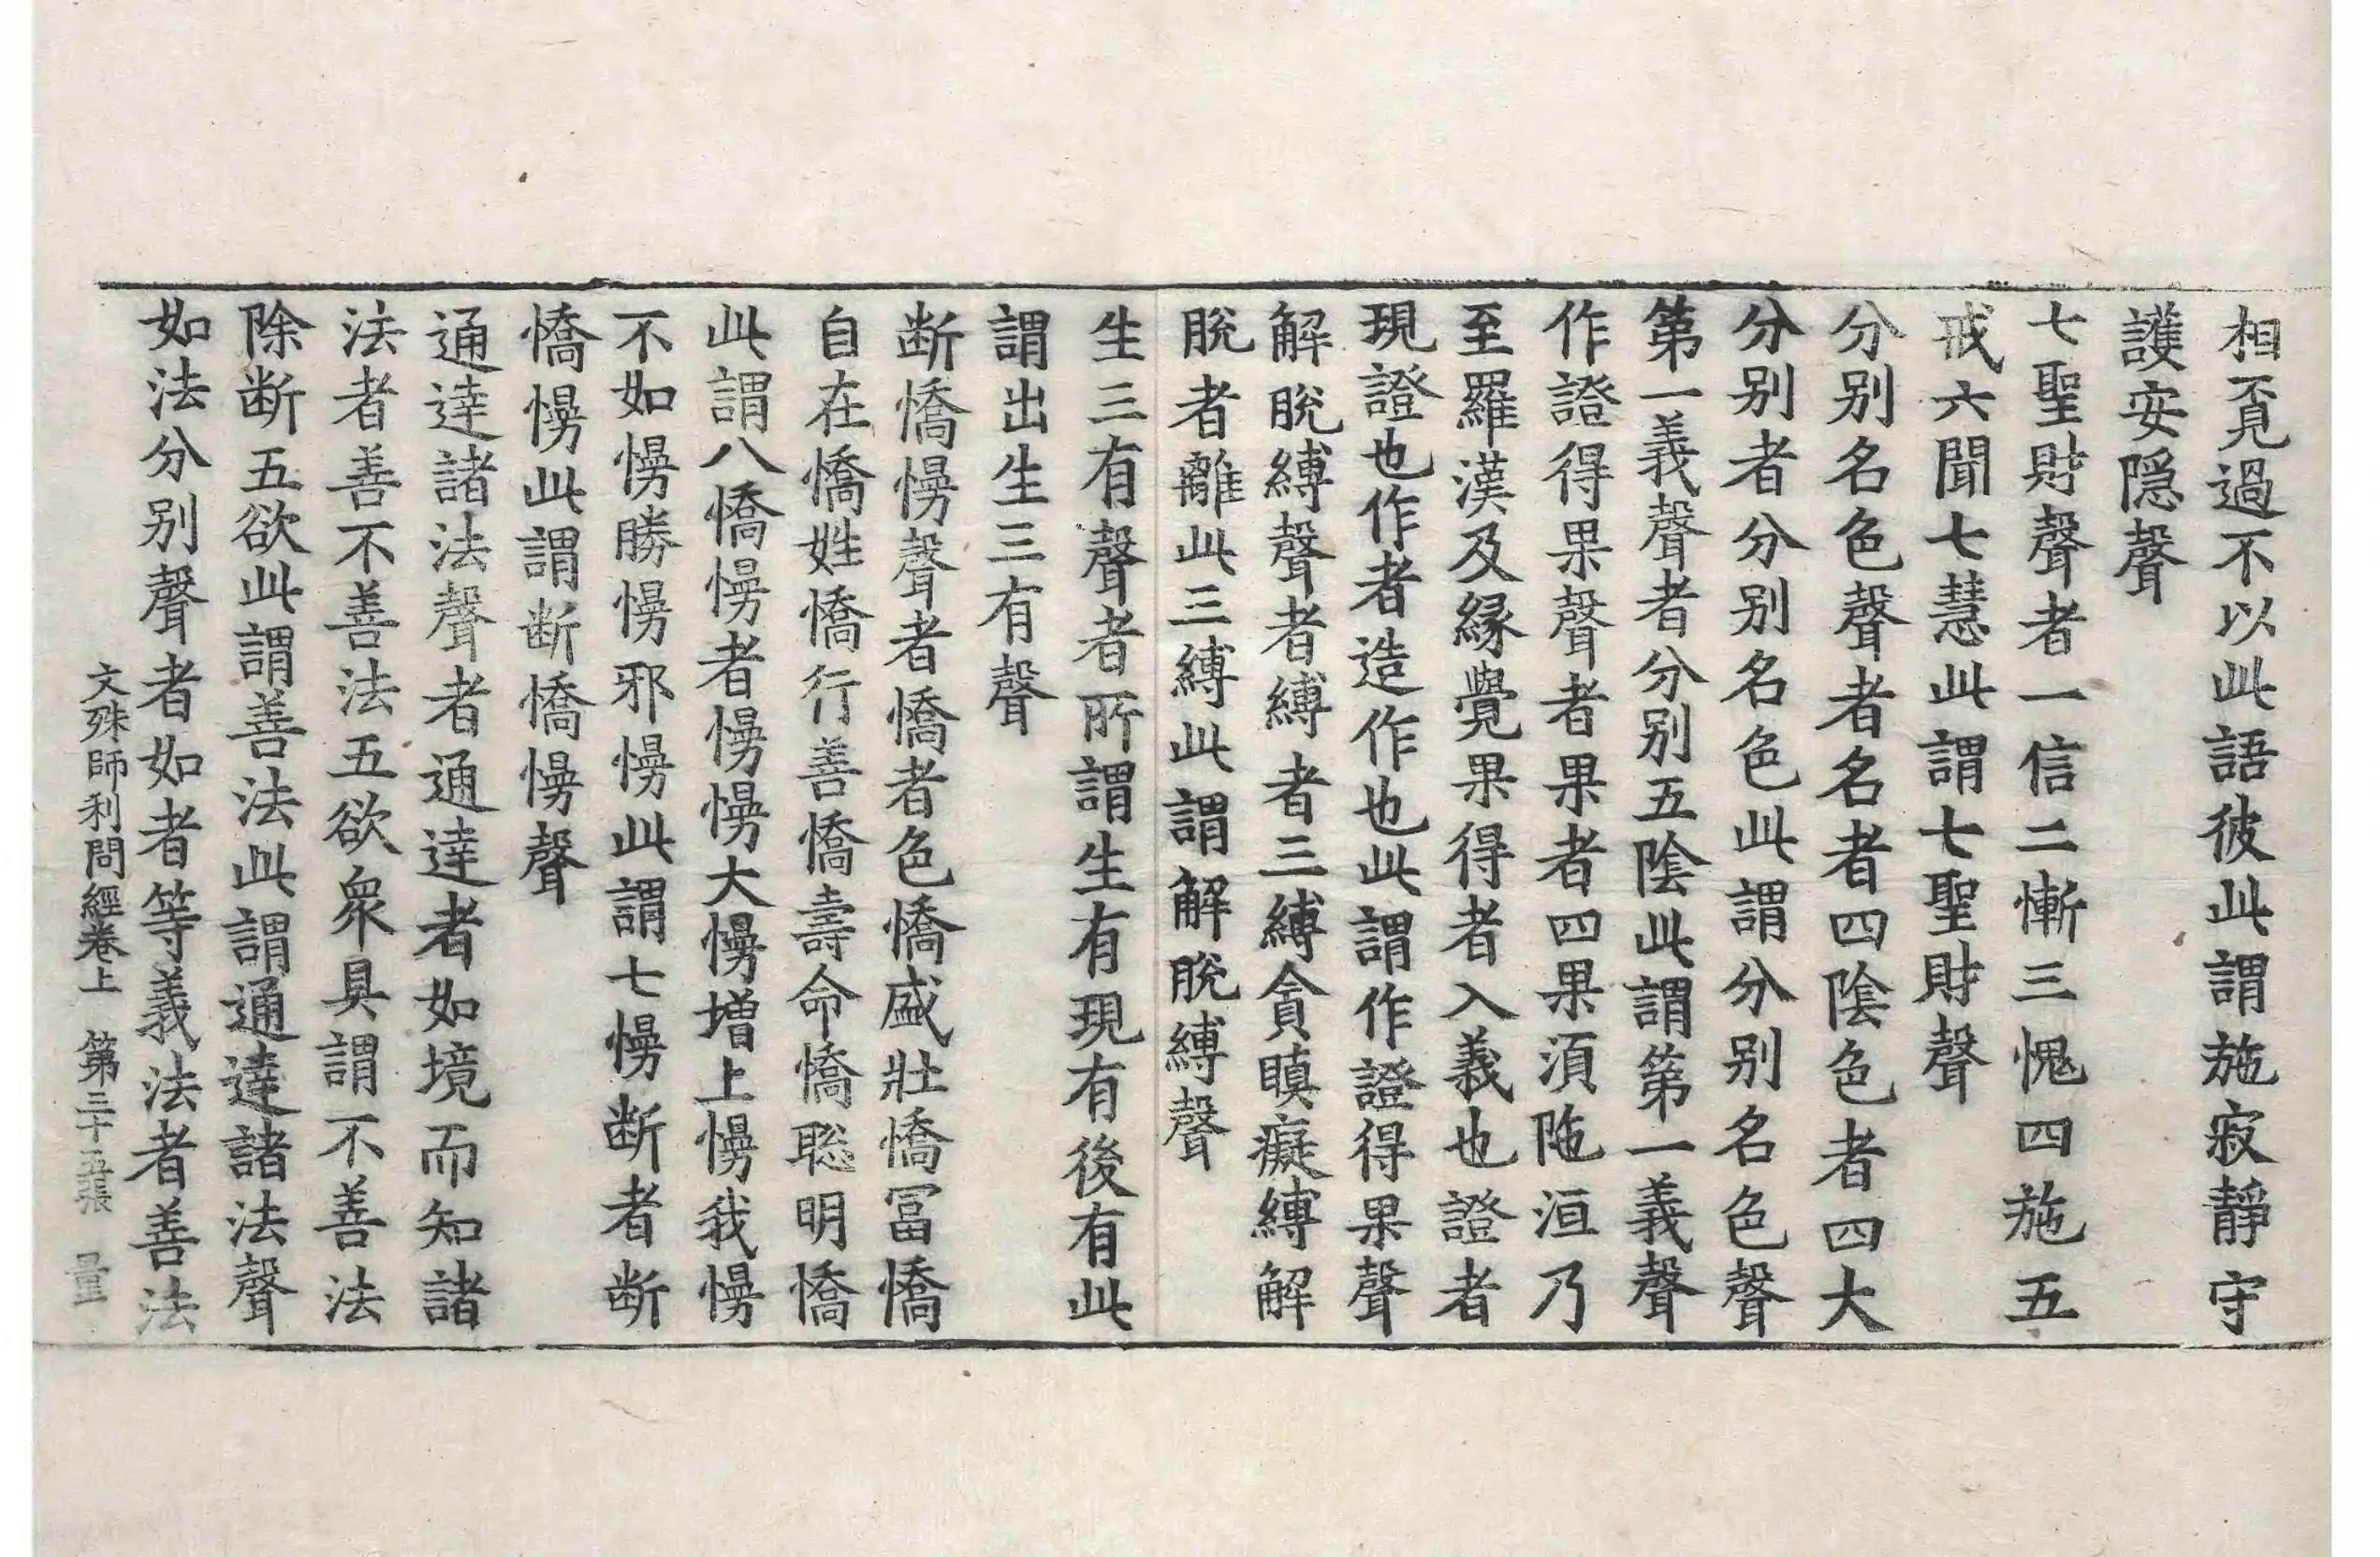 相覔過不以此語彼此謂施寂靜守
護安隱聲
七聖財聲者一信二慚三愧四施五
戒六聞七慧此謂七聖財聲
分別名色聲者名者四陰色者四大
分別者分別名色此謂分別名色聲
第一義聲者分別五陰此謂第一義聲
作證得果聲者果者四果湏陁洹乃
至羅漢及緣覺果得者入義也證者
現證也作者造作也此謂作證得果聲
解脫縛聲者縛者三縛貪瞋癡縛解
脫者離此三縛此謂解脫縛聲
生三有聲者所謂生有現有後有此
謂出生三有聲
断憍慢聲者憍者色憍盛壯憍冨憍
自在憍姓憍行善憍壽命憍聡明憍
此謂八憍慢者慢慢大慢增上慢我慢
不如慢勝慢邪慢此謂七慢断者断
憍慢此謂断憍慢聲
通達諸法聲者通達者如境而知諸
法者善不善法五欲衆具謂不善法
除断五欲此謂善法此謂通達諸法聲
如法分別聲者如者等義法者善法
文殊師利問經卷上 第三十五張 量